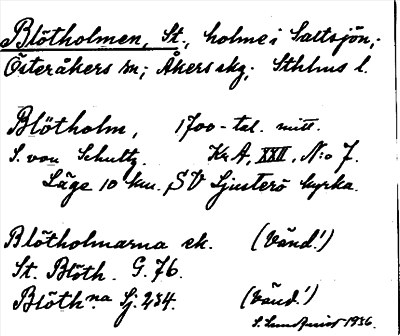 Blötholmen, St., holme i Saltsjön,;
Österåkers sn; Åkers skg; Sthlms l.
Blötholm, 1700-tal. mitt.
S. von Schultz. Kr A, XXII, N:o 7.
Läge 10 km. SV Ljusterö kyrka.
Blötholmarna ek. (Vänd!)
St. Blöth. G. 76.
Blöth.na Sj: 234. (Vänd!)
S. 1936.